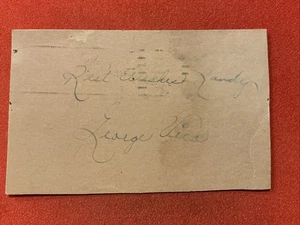 Best Wishes Randy
George Vico